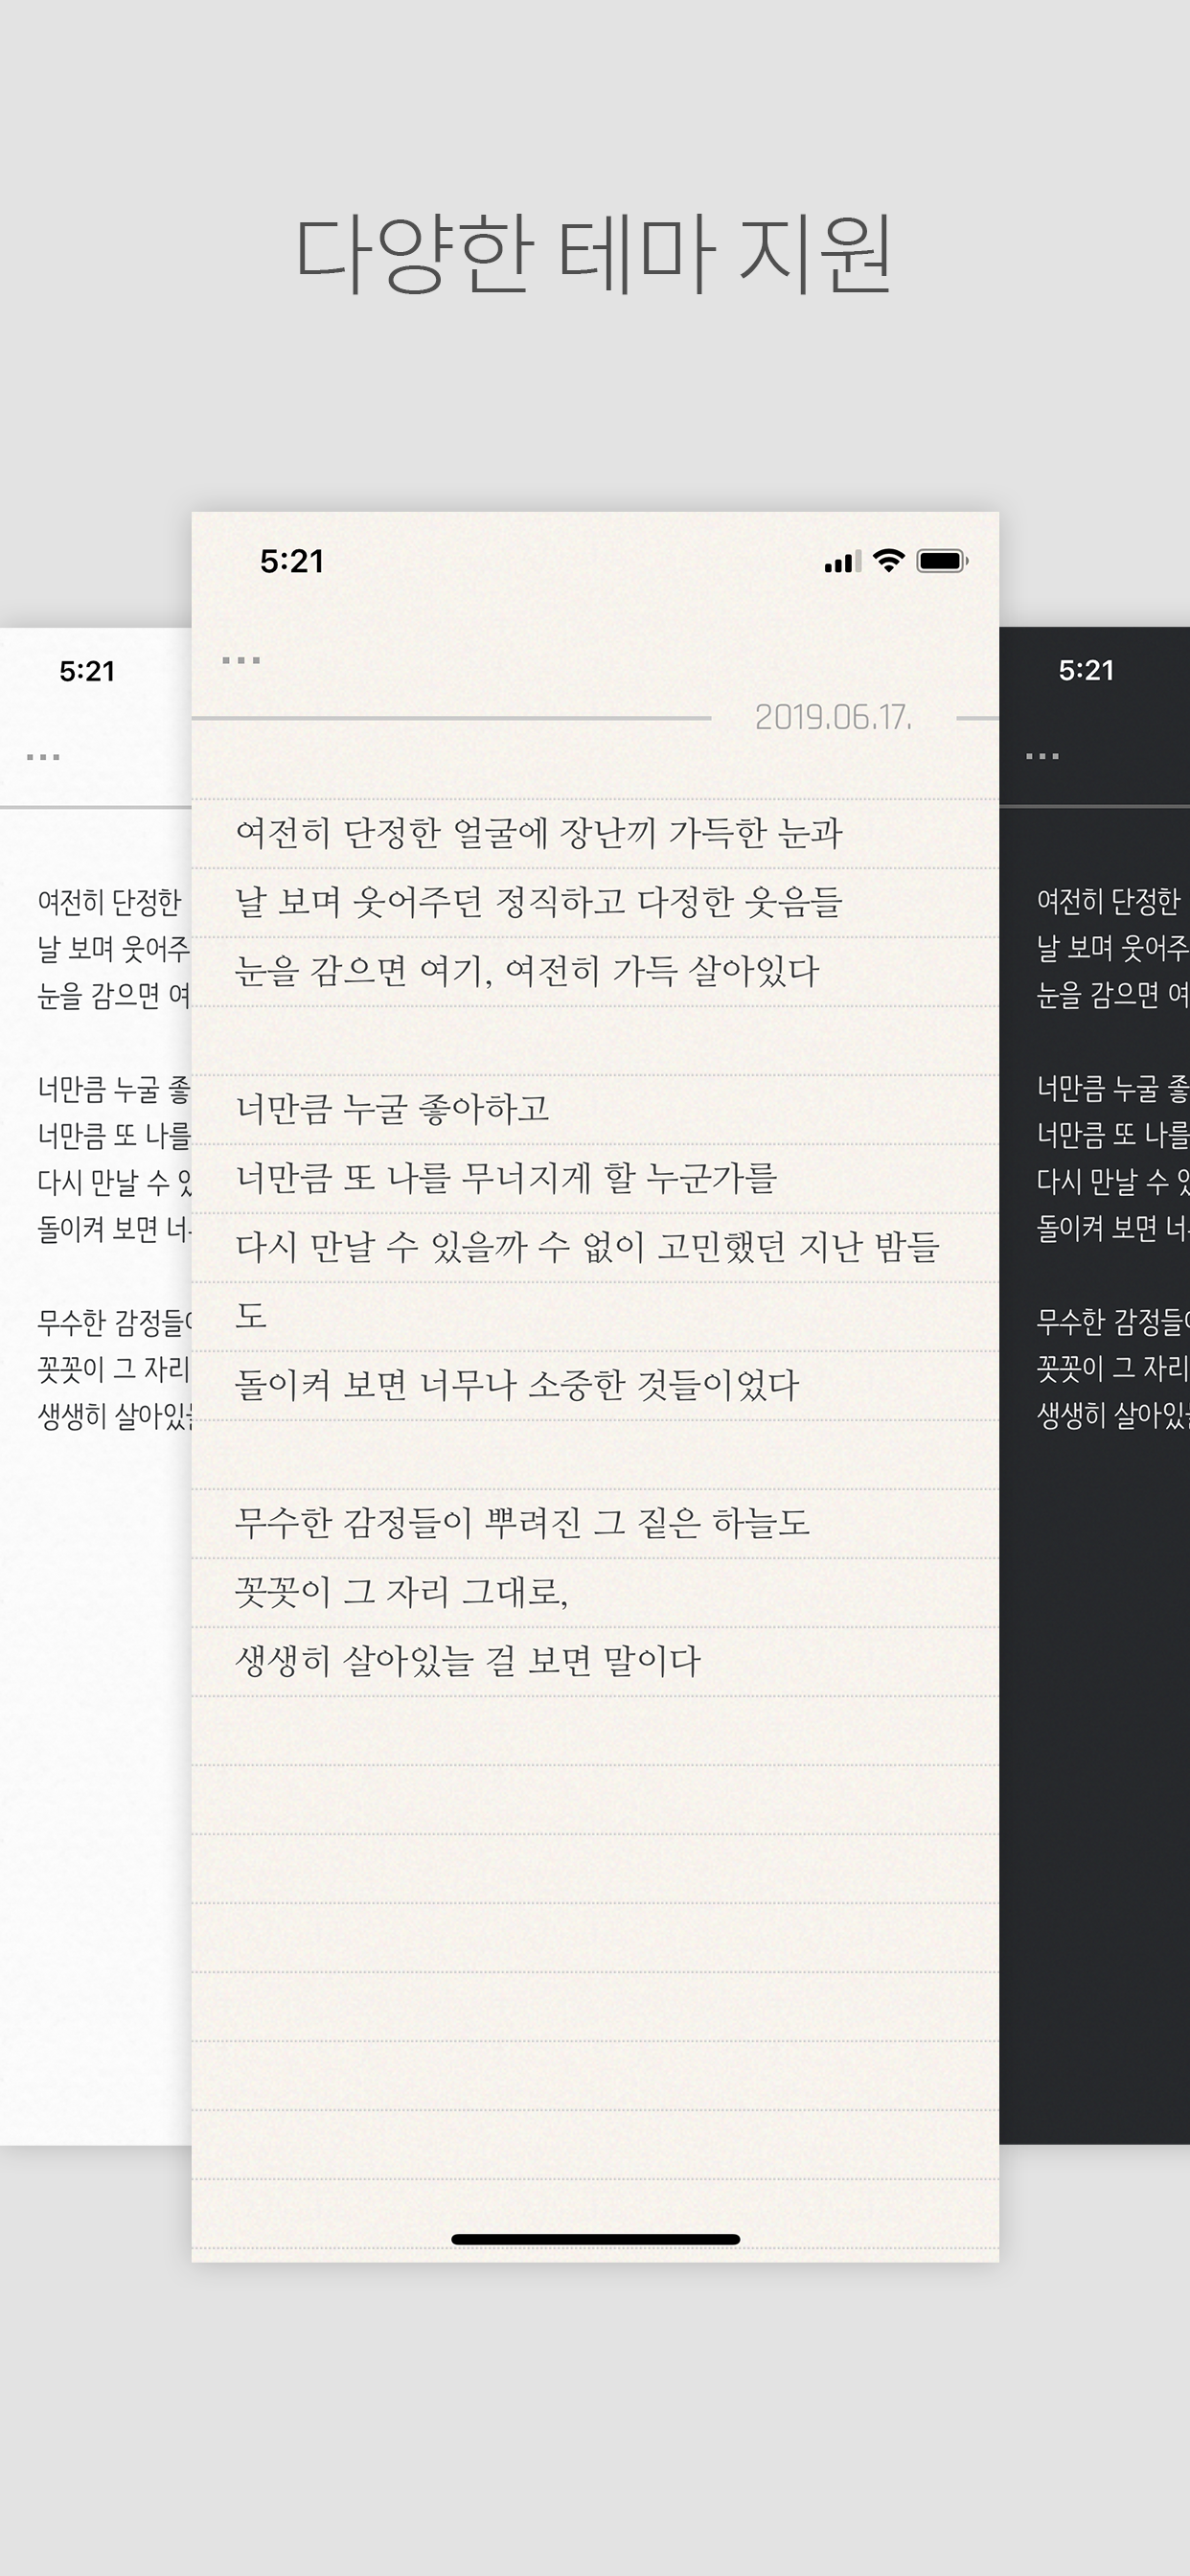 다양한 테마 지원
5:21
...
2019.06.17.
여전히 단정한 얼굴에 장난끼 가득한 눈과
날 보며 웃어주던 정직하고 다정한 웃음들
눈을 감으면 여기, 여전히 가득 살아있다
너만큼 누굴 좋아하고
너만큼 또 나를 무너지게 할 누군가를
다시 만날 수 있을까 수 없이 고민했던 지난 밤들
도
돌이켜 보면 너무나 소중한 것들이었다
무수한 감정들이 뿌려진 그 짙은 하늘도
꼿꼿이 그 자리 그대로,
생생히 살아있늘 걸 보면 말이다
5:21
...
여전히 단정한
날 보며 웃어주
눈을 감으면 여
너만큼 누굴 좋
너만큼 또 나를
다시 만날 수
돌이켜 보면 너
무수한 감정들
꼿꼿이 그 자리
생생히 살아있
5:21
...
여전히 단정한
날 보며 웃어주
눈을 감으면 여
너만큼 누굴 좋
너만큼 또 나를
다시 만날 수
돌이켜 보면 너
무수한 감정들
꼿꼿이 그 자리
생생히 살아있